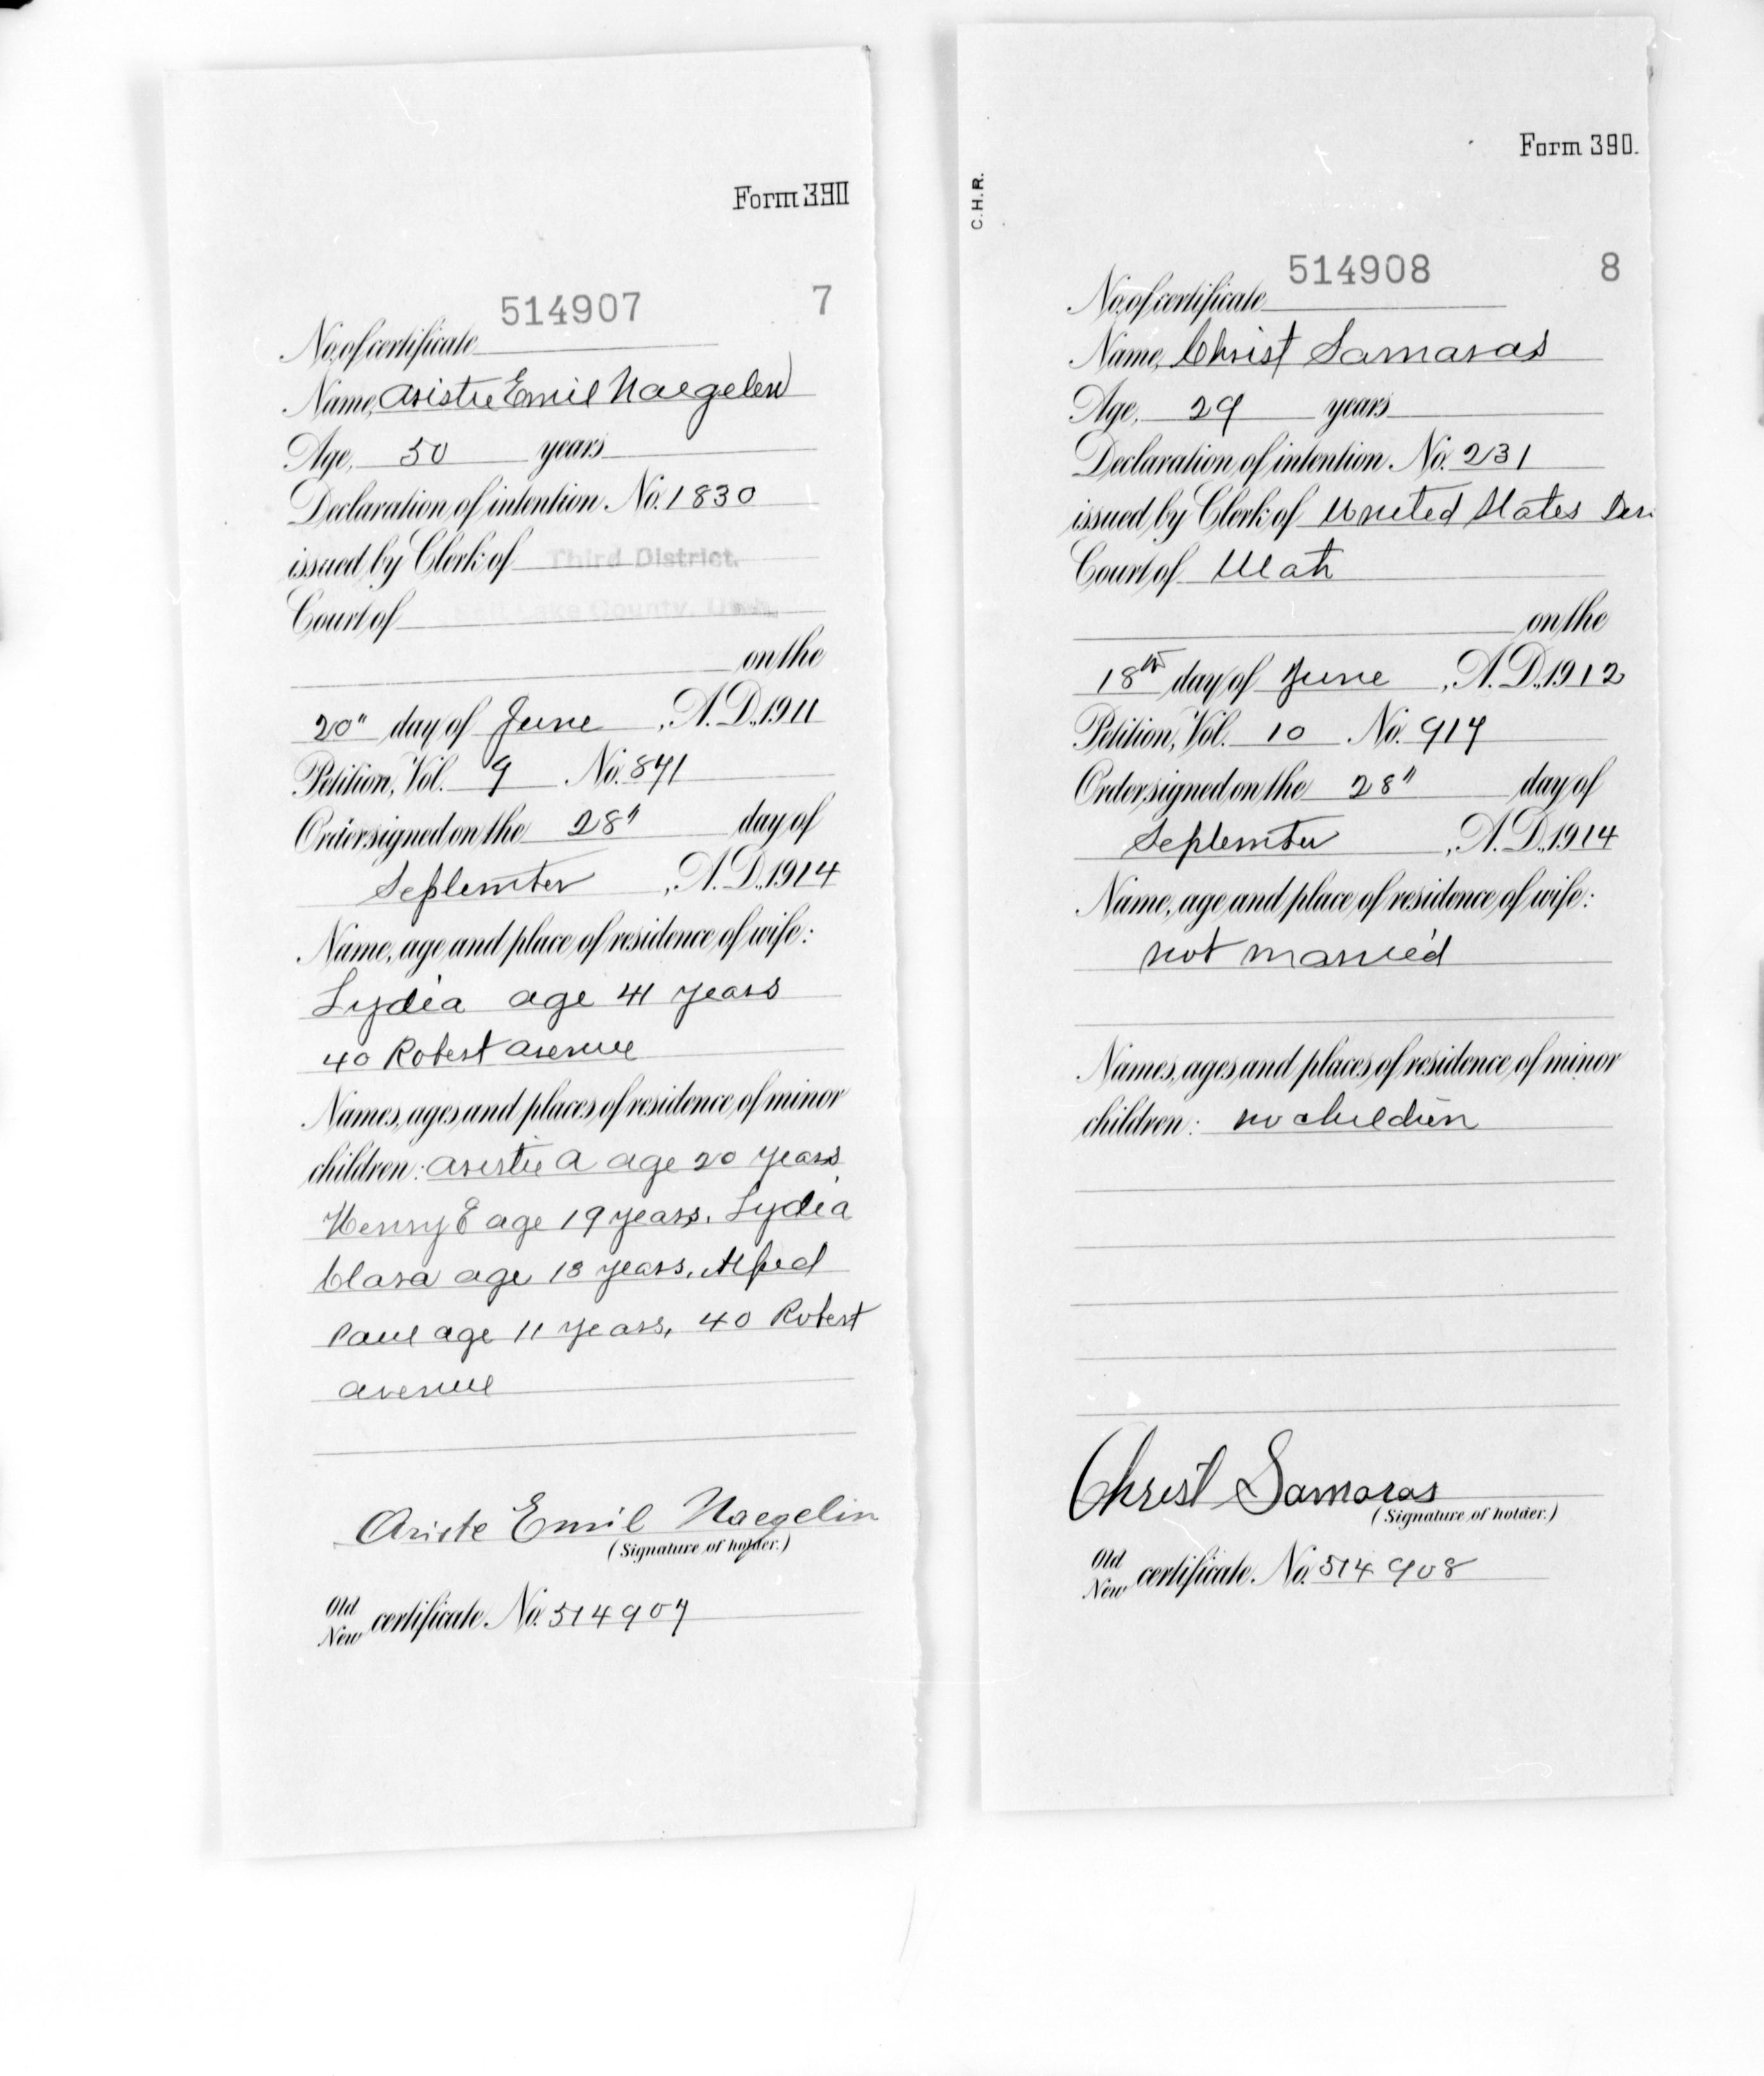 Form 390
514907 7
No. of certificate
Name, Aristie Emil Naegelen
Age, 50 years
Declaration of intention. No. 1830
issued by Clerk of Third District.
Court of Salt Lake County, Utah.
on the
20" day of June , A.D. 1911
Petition, Vol. 9 No. 871
Order signed on the 28" day of
September , A.D. 1914
Name, age and place of residence of wife:
Lydia age 41 years
40 Robert avenue
Names, ages and places of residence of minor
children: Aristie A age 20 years
Henry E age 19 years. Lydia
Clara age 18 years. Alfred
Paul age 11 years, 40 Robert
avenue
Ariste Emil Naegelin
(Signature of holder.)
Old
New certificate. No. 514907
C.H.R.
Form 390.
514908 8
No. of certificate
Name, Christ Samaras
Age, 29 years
Declaration of intention. No. 231
issued by Clerk of United States
Court of Utah
on the
18th day of June , A.D. 1912
Petition, Vol. 10 No. 917
Order signed on the 28" day of
September , A.D. 1914
Name, age and place of residence of wife:
not married
Names, ages and places of residence of minor
children: no children
Christ Samaras
(Signature of holder.)
Old
New certificate. No. 514908